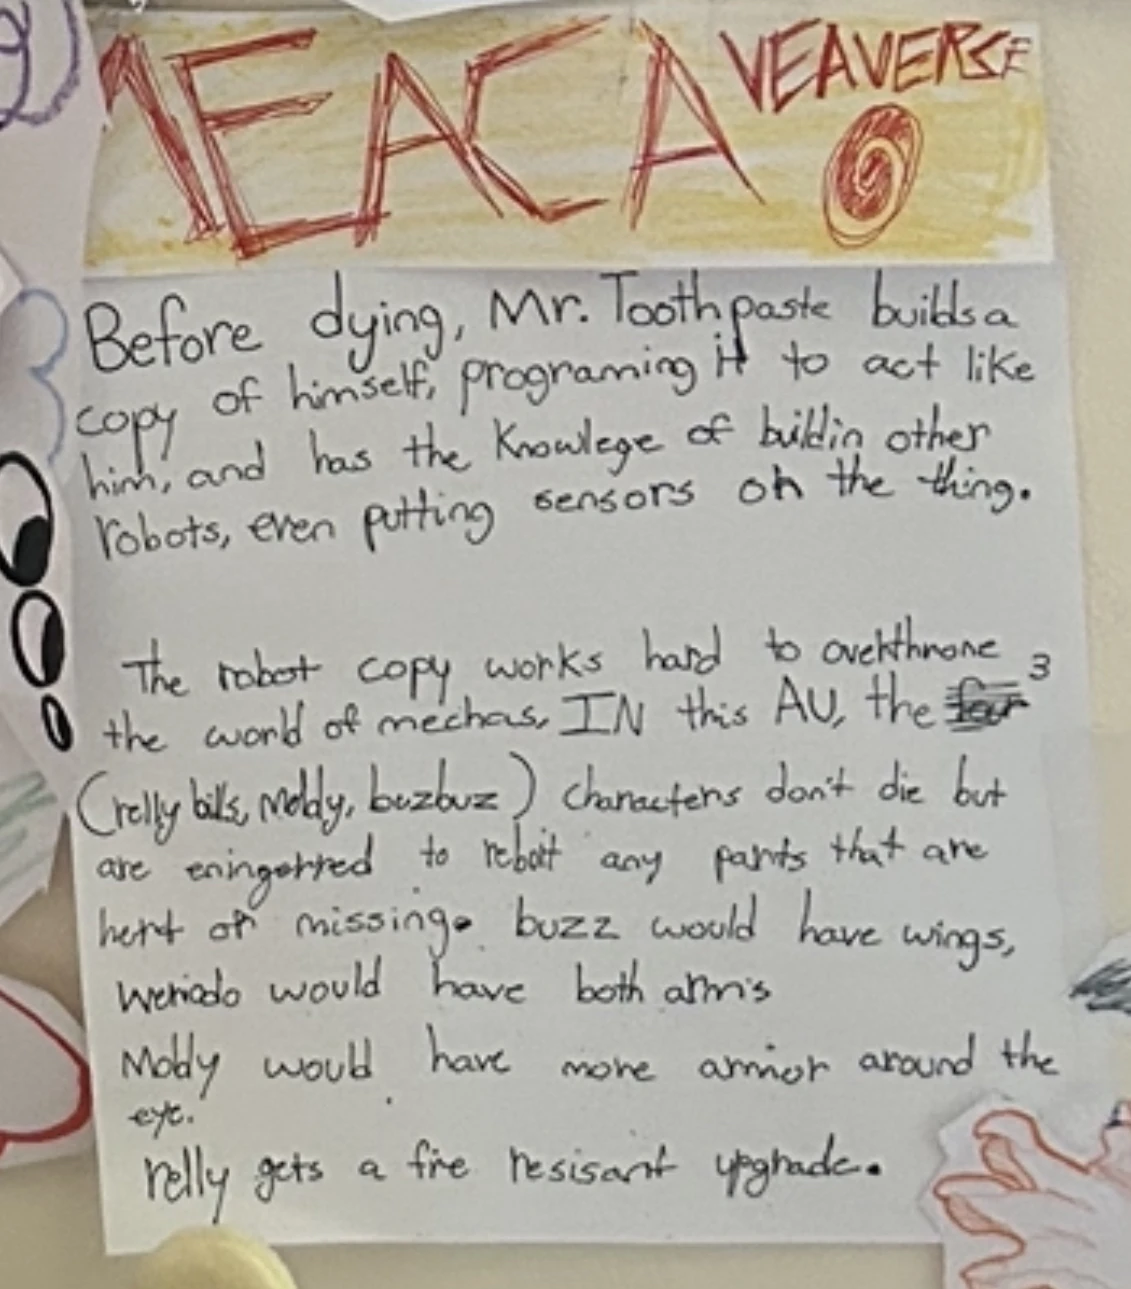 MEACA VEAVERSE
Before dying, Mr. Toothpaste builds a
copy of himself, programing it to act like
him, and has the Knowlege of buildin other
robots, even putting sensors on the thing.
The robot copy works hard to overthrone
the world of mechas, IN this AU, the 3
(relly bills, Moldy, buzbuz) characters don't die but
are eningerred to reboit any parts that are
hert or missing. buzz would have wings,
weriodo would have both arms
Moldy would have more armor around the
eye.
relly gets a fire resisant upgrade.